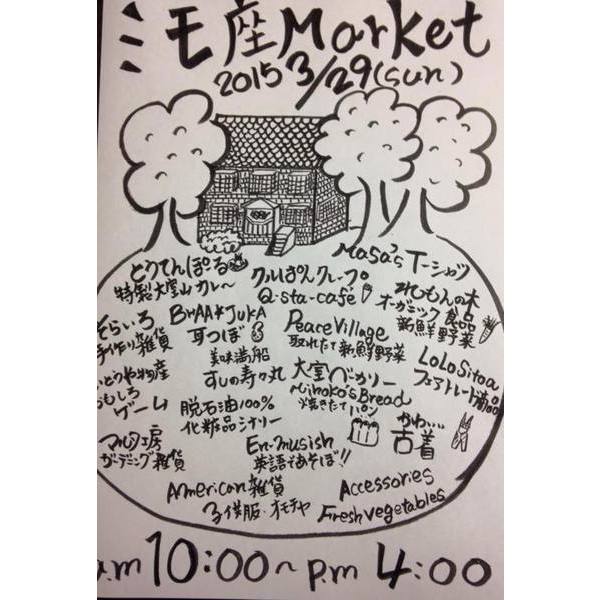 ミモ座Market
2015 3/29(sun)
Masa's Tーシャツ
とうてんぽーる
特製大室山カレー
クルぽんクレープ
Q-sta-café
れもんの木
オーガニック食品
新鮮野菜
そらいろ
手作り雑貨
BHAA★JUKA
耳つぼ
Peace Village
取れたて新鮮野菜
LoLoSitoa
フェアトレード商品
いとうや物産
おもしろ
ゲーム
美味満船
すしの寿々丸
大室ベーカリー
Mihoko's Bread
焼きたてパン
脱石油100%
化粧品シナリー
かわいい
古着
マルタ工房
ガーデニング雑貨
En-musish
英語であそぼ!!
American 雑貨
子供服・オモチャ
Accessories
Fresh vegetables
a.m 10:00〜p.m 4:00